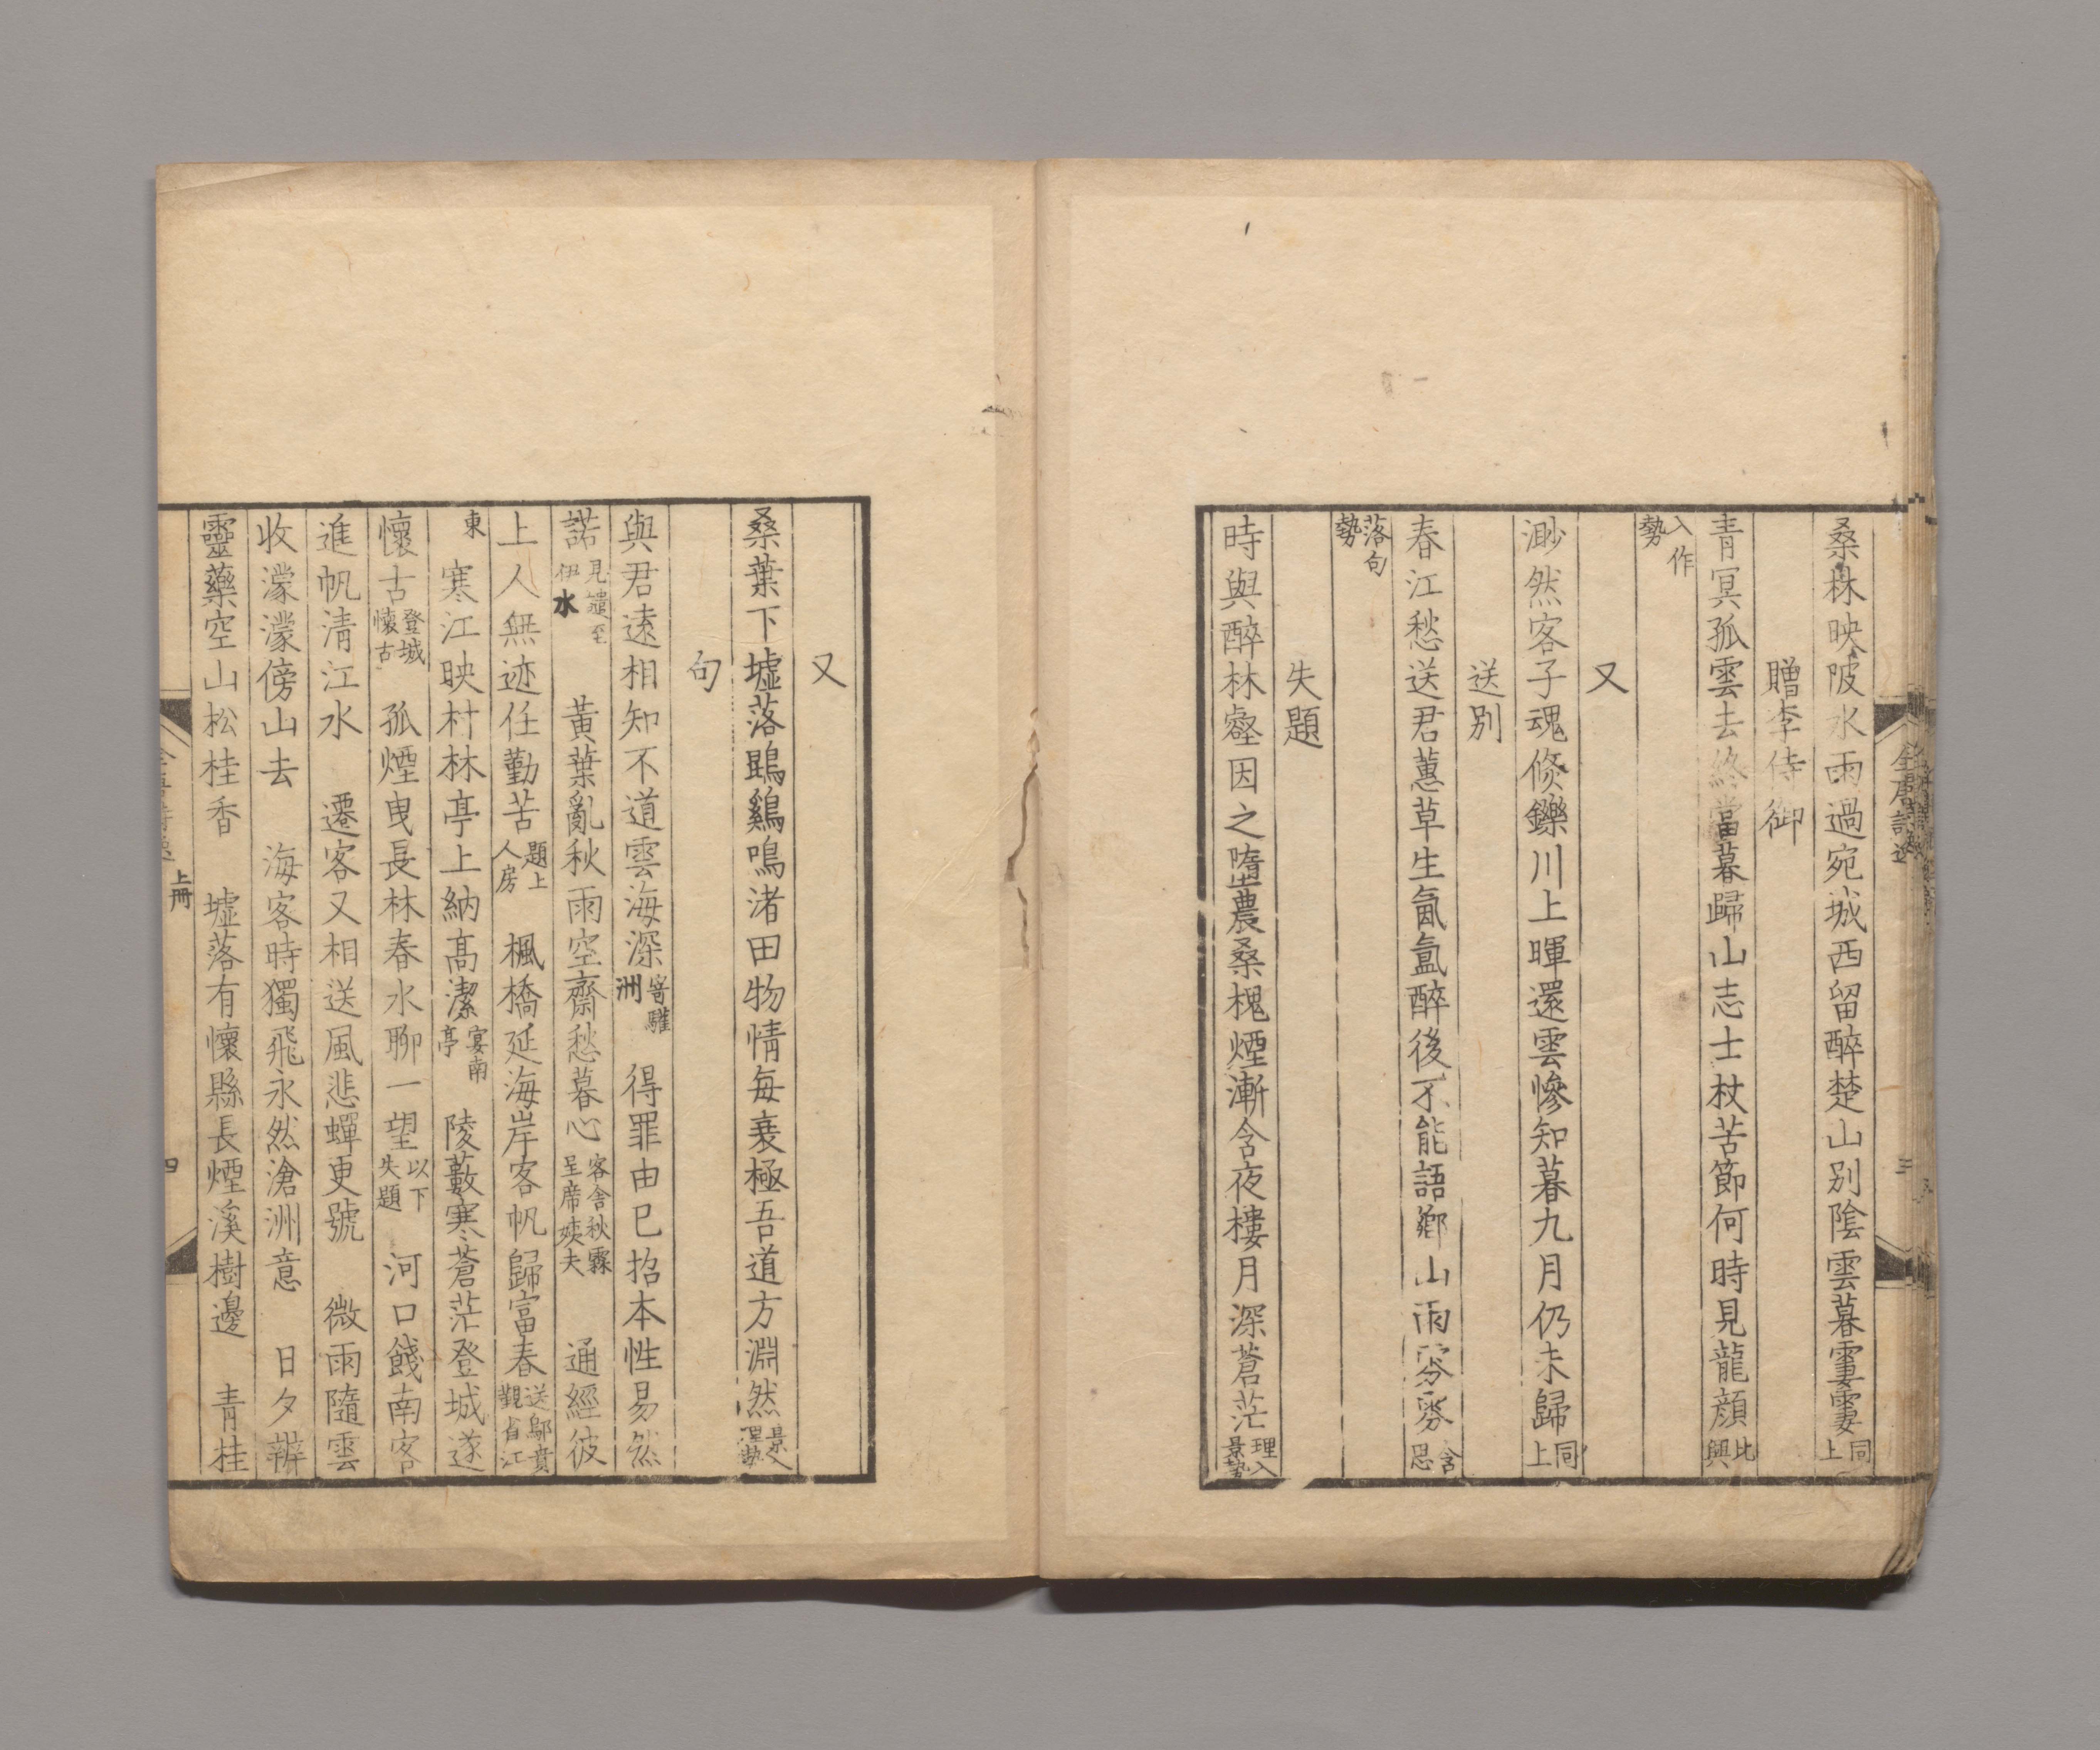 桑林映陂水雨過宛城西留醉楚山別陰雲暮霋霋同上
贈李侍御
青冥孤雲去終當暮歸山志士杖苦節何時見龍顔比興
入作勢
又
渺然客子魂倐鑠川上暉還雲慘知暮九月仍未歸同上
送別
春江愁送君蕙草生氤氳醉後不能語鄉山雨雰雰含思
落句勢
失題
時與醉林壑因之墮農桑槐煙漸含夜樓月深蒼茫理入景勢
又
桑葉下墟落鵾鷄鳴渚田物情每衰極吾道方淵然景入理勢
句
與君遠相知不道雲海深寄驩洲　得罪由已招本性易然
諾見譴至伊水　黃葉亂秋雨空齋愁暮心客舍秋霖呈席姨夫　通經彼
上人無迹任勤苦題上人房　楓橋延海岸客帆歸富春送鄔賁覲省江
東　寒江映村林亭上納高潔宴南亭　陵藪寒蒼茫登城遂
懷古登城懷古　孤煙曳長林春水聊一望以下失題　河口餞南客
進帆清江水　遷客又相送風悲蟬更號　微雨隨雲
收濛濛傍山去　海客時獨飛永然滄洲意　日夕辦
靈藥空山松桂香　墟落有懷縣長煙溪樹邊　青桂
上冊
四